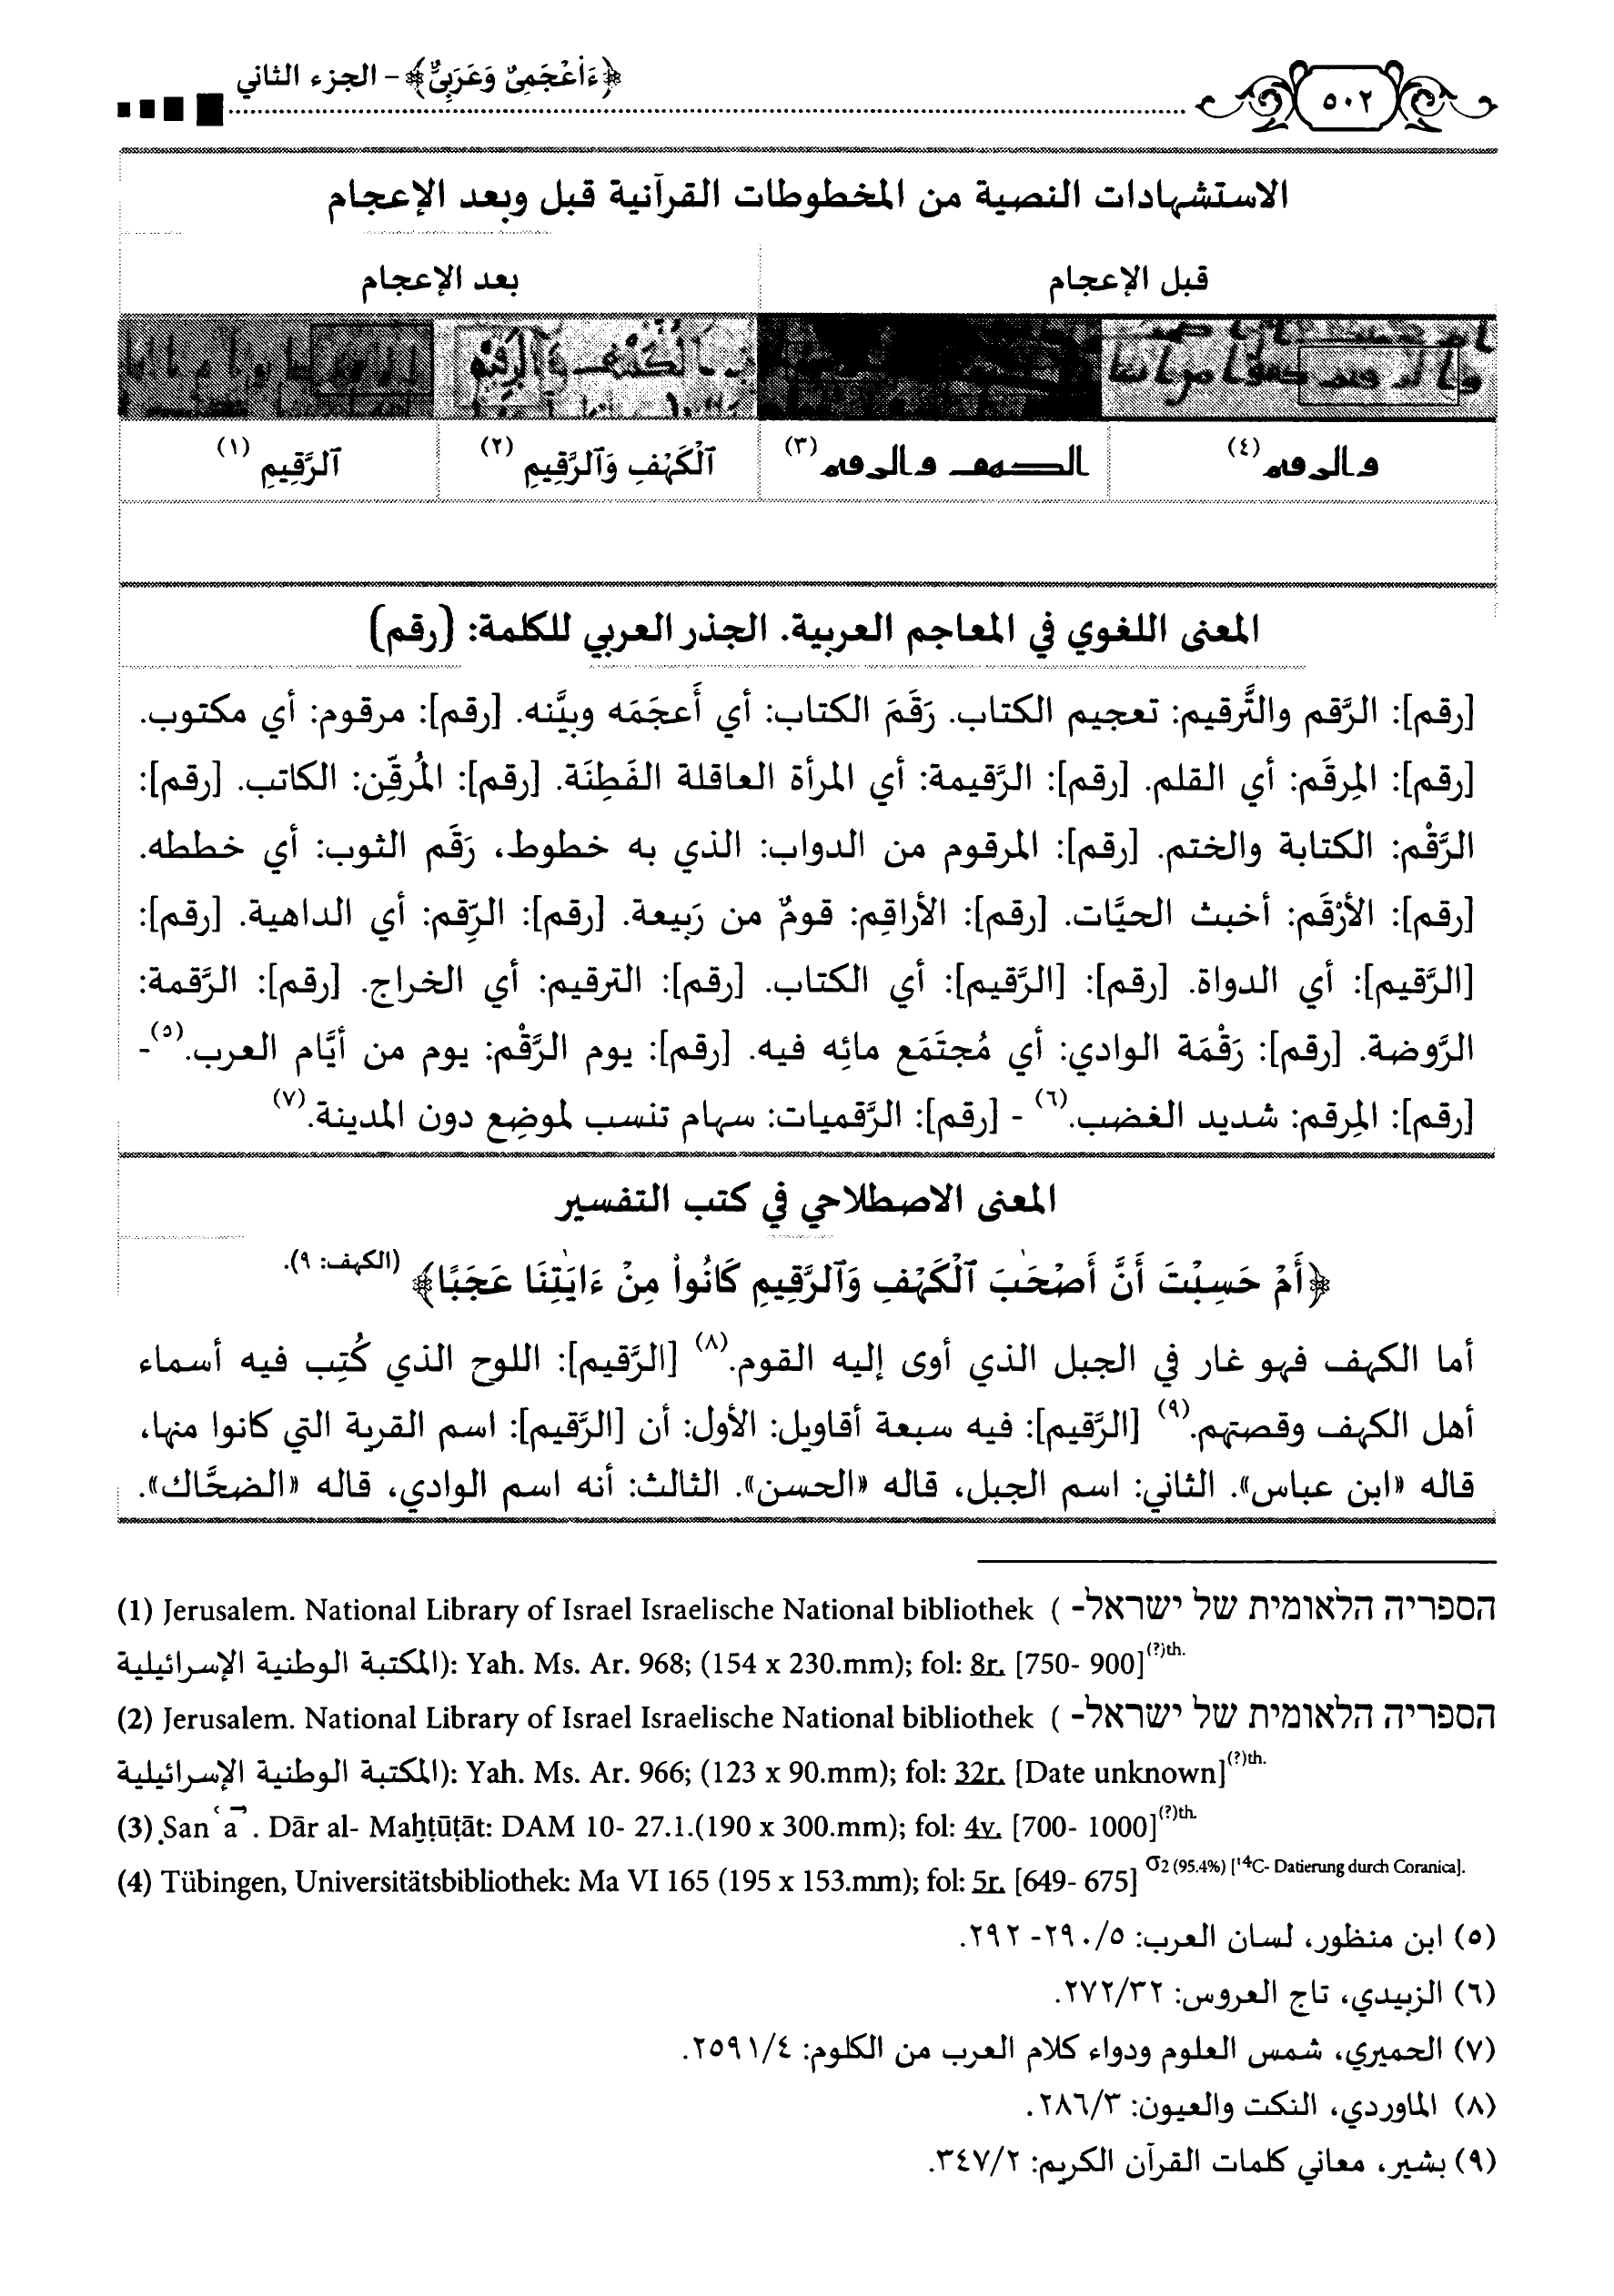 ٥٠٢
﴿ءَا۬عْجَمِىٌّ وَعَرَبِىٌّ﴾ – الجزء الثاني
الاستشهادات النصية من المخطوطات القرآنية قبل وبعد الإعجام
قبل الإعجام
بعد الإعجام
(٤)
(٣)
ٱلْكَهْفِ وَٱلرَّقِيمِ (٢)
ٱلرَّقِيمِ (١)
المعنى اللغوي في المعاجم العربية. الجذر العربي للكلمة: (رقم)
[رقم]: الرَّقم والتَّرقيم: تعجيم الكتاب. رَقَمَ الكتاب: أي أَعجَمَه وبيَّنه. [رقم]: مرقوم: أي مكتوب.
[رقم]: المِرقَم: أي القلم. [رقم]: الرَّقيمة: أي المرأة العاقلة الفَطِنَة. [رقم]: المُرقِّن: الكاتب. [رقم]:
الرَّقْم: الكتابة والختم. [رقم]: المرقوم من الدواب: الذي به خطوط، رَقَم الثوب: أي خططه.
[رقم]: الأرْقَم: أخبث الحيَّات. [رقم]: الأراقِم: قومٌ من رَبيعة. [رقم]: الرِّقم: أي الداهية. [رقم]:
[الرَّقيم]: أي الدواة. [رقم]: [الرَّقيم]: أي الكتاب. [رقم]: الترقيم: أي الخراج. [رقم]: الرَّقمة:
الرَّوضة. [رقم]: رَقْمَة الوادي: أي مُجتَمَع مائِه فيه. [رقم]: يوم الرَّقْم: يوم من أيَّام العرب.(٥)-
[رقم]: المِرقم: شديد الغضب.(٦) - [رقم]: الرَّقميات: سهام تنسب لموضِع دون المدينة.(٧)
المعنى الاصطلاحي في كتب التفسير
﴿أَمْ حَسِبْتَ أَنَّ أَصْحَٰبَ ٱلْكَهْفِ وَٱلرَّقِيمِ كَانُوا۟ مِنْ ءَايَٰتِنَا عَجَبًا﴾ (الكهف: ٩).
أما الكهف فهو غار في الجبل الذي أوى إليه القوم.(٨) [الرَّقيم]: اللوح الذي كُتِب فيه أسماء
أهل الكهف وقصتهم.(٩) [الرَّقيم]: فيه سبعة أقاويل: الأول: أن [الرَّقيم]: اسم القرية التي كانوا منها،
قاله «ابن عباس». الثاني: اسم الجبل، قاله «الحسن». الثالث: أنه اسم الوادي، قاله «الضحَّاك».
(1) Jerusalem. National Library of Israel Israelische National bibliothek ( הספריה הלאומית של ישראל-
المكتبة الوطنية الإسرائيلية): Yah. Ms. Ar. 968; (154 x 230.mm); fol: 8r. [750- 900](?)th.
(2) Jerusalem. National Library of Israel Israelische National bibliothek ( הספריה הלאומית של ישראל-
المكتبة الوطنية الإسرائيلية): Yah. Ms. Ar. 966; (123 x 90.mm); fol: 32r. [Date unknown](?)th.
(3) Ṣanʿāʾ. Dār al- Maḫṭūṭāt: DAM 10- 27.1.(190 x 300.mm); fol: 4v. [700- 1000](?)th.
(4) Tübingen, Universitätsbibliothek: Ma VI 165 (195 x 153.mm); fol: 5r. [649- 675] σ2 (95.4%) [14C- Datierung durch Coranica].
(٥) ابن منظور، لسان العرب: ٢٩٠/٥- ٢٩٢.
(٦) الزبيدي، تاج العروس: ٢٧٢/٣٢.
(٧) الحميري، شمس العلوم ودواء كلام العرب من الكلوم: ٢٥٩١/٤.
(٨) الماوردي، النكت والعيون: ٢٨٦/٣.
(٩) بشير، معاني كلمات القرآن الكريم: ٣٤٧/٢.